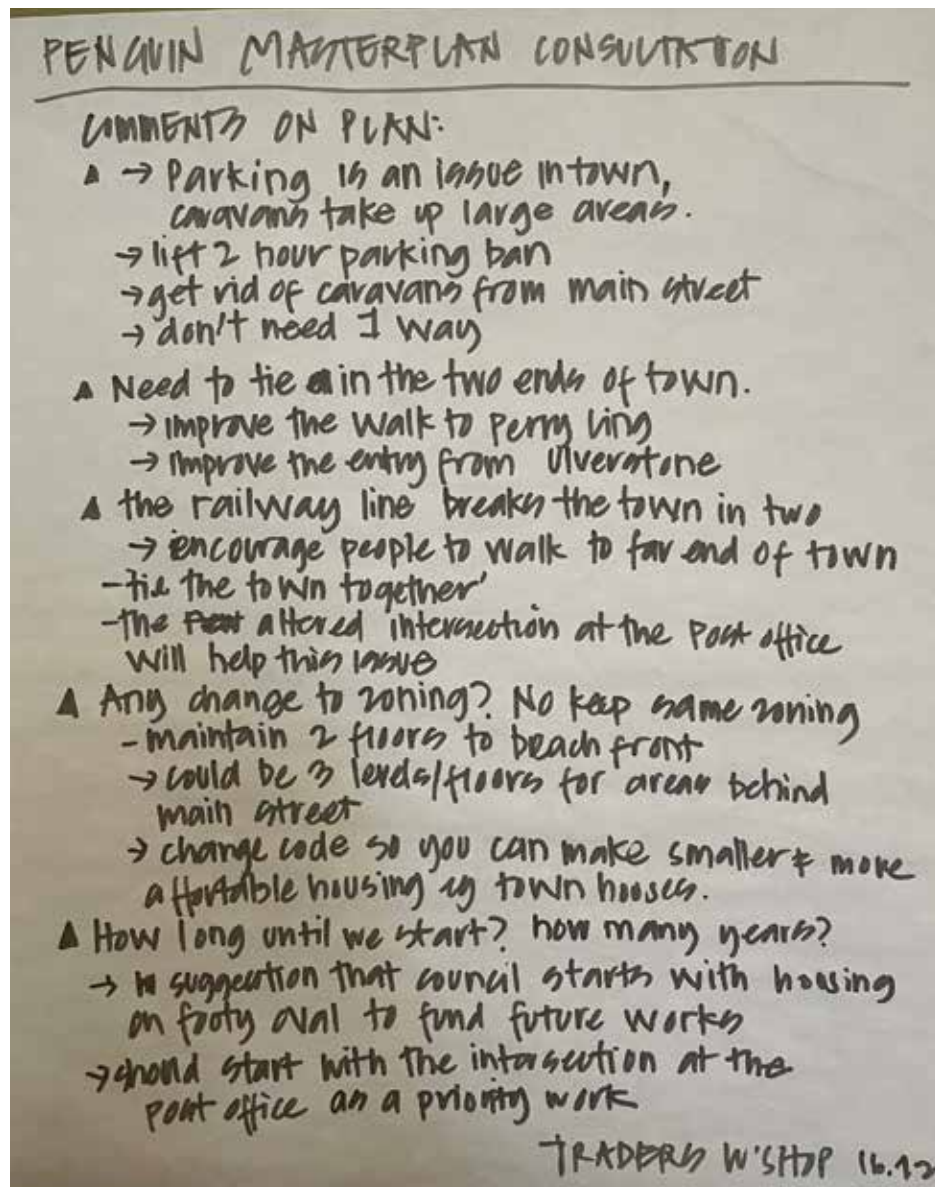 PENGUIN MASTERPLAN CONSULTATION
COMMENTS ON PLAN:
▲ → Parking is an issue in town,
caravans take up large areas.
→ lift 2 hour parking ban
→ get rid of caravans from main street
→ don't need 1 way
▲ Need to tie in the two ends of town.
→ improve the walk to Perry Ling
→ improve the entry from Ulverstone
▲ the railway line breaks the town in two
→ encourage people to walk to far end of town
- tie the town together
- the altered intersection at the Post office
will help this issue
▲ Any change to zoning? No keep same zoning
- maintain 2 floors to beach front
→ could be 3 levels/floors for areas behind
main street
→ change code so you can make smaller & more
affordable housing eg town houses.
▲ How long until we start? how many years?
→ suggestion that council starts with housing
on footy oval to fund future works
→ should start with the intersection at the
post office as a priority work
TRADERS W'SHOP 16.12